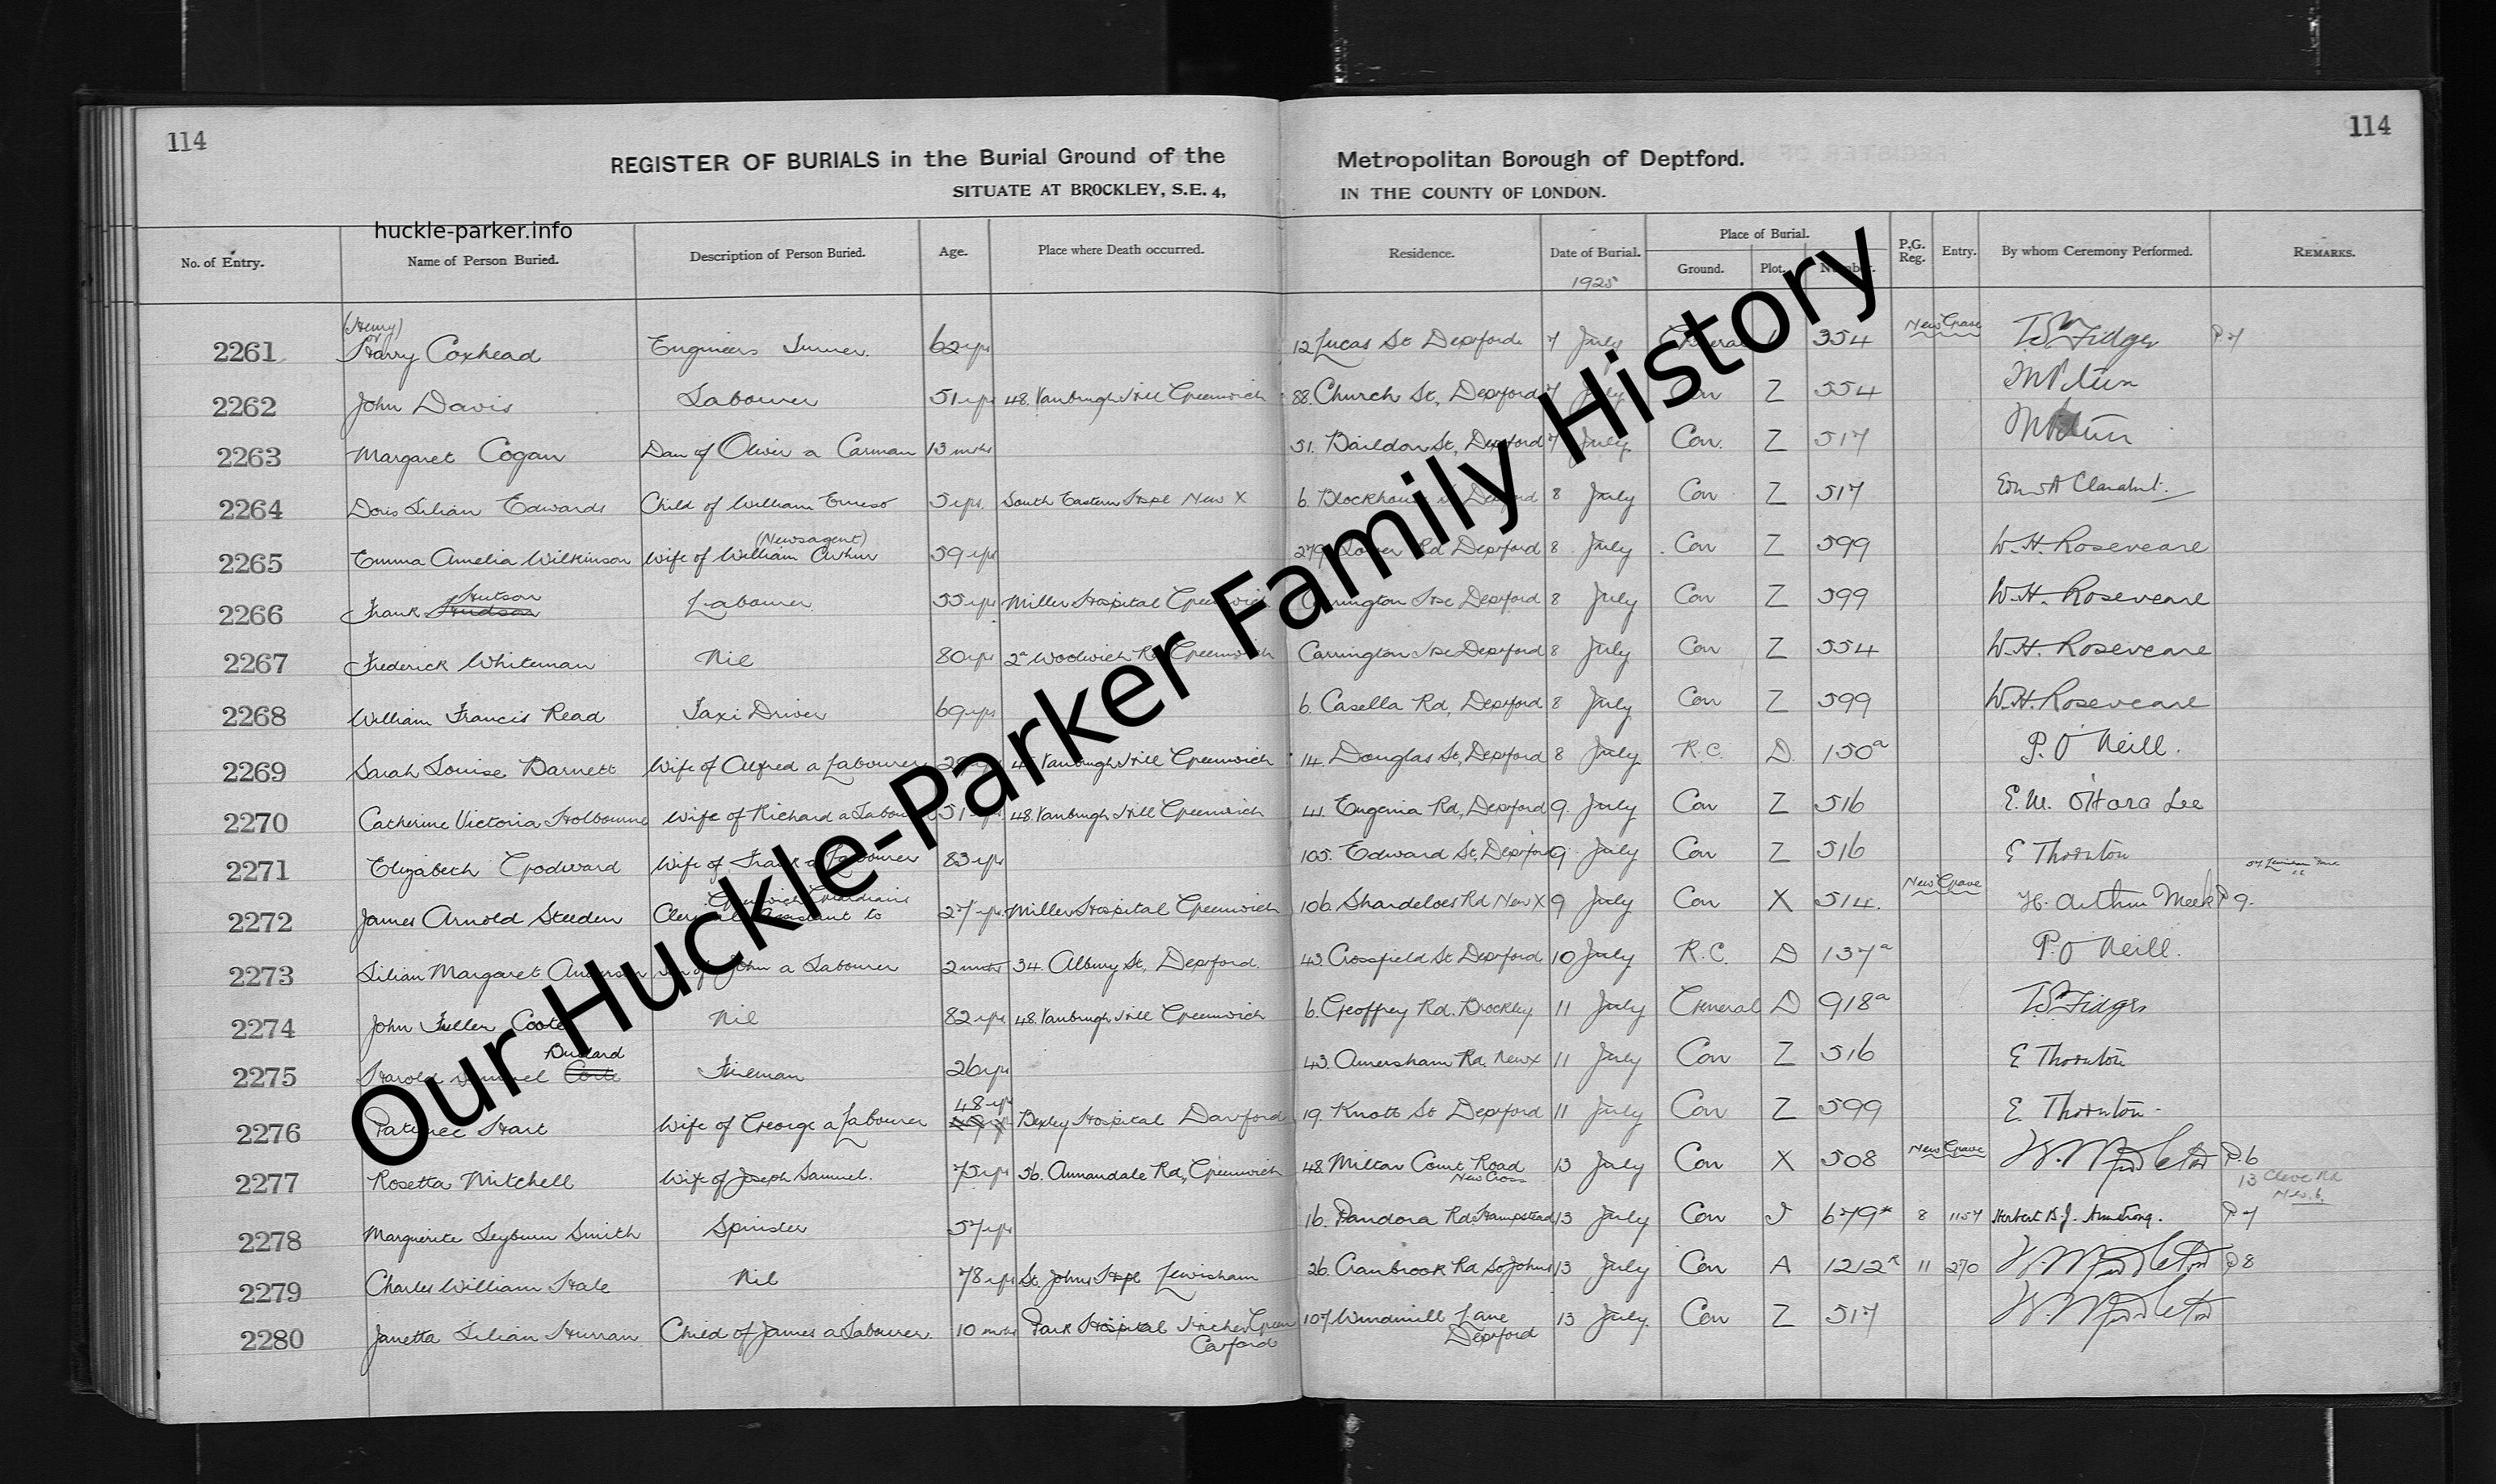 114
114
REGISTER OF BURIALS in the Burial Ground of the Metropolitan Borough of Deptford.
SITUATE AT BROCKLEY, S.E. 4, IN THE COUNTY OF LONDON.
huckle-parker.info
No. of Entry. Name of Person Buried. Description of Person Buried. Age. Place where Death occurred. Residence. Date of Burial. Place of Burial. P.G. Reg. Entry. By whom Ceremony Performed. REMARKS.
Ground. Plot. Number.
1925
(Henry)
2261 Harry Coxhead Engineers Turner. 62 yrs 12 Lucas St Deptford 7 July General 354 New Grave P 7
2262 John Davis Labourer 51 yrs 48. Vanbrugh Hill Greenwich 88. Church St, Deptford 7 July Con Z 554
2263 Margaret Cogan Dau of Oliver a Carman 13 mths 51. Baildon St, Deptford 7 July Con. Z 517
2264 Doris Lilian Edwards Child of William Ernest 5 yrs. South Eastern Hspl New X 6. Blockhouse Deptford 8 July Con Z 517
(Newsagent)
2265 Emma Amelia Wilkinson Wife of William Arthur 59 yrs 279 Rd Deptford 8 July Con Z 599 W. H. Roseveare
Hutson
2266 Frank Hudson Labourer 55 yrs Miller Hospital Greenwich Carrington Hse Deptford 8 July Con Z 599 W. H. Roseveare
2267 Frederick Whiteman Nil 80 yrs 2a Woolwich Rd Greenwich Carrington Hse Deptford 8 July Con Z 554 W. H. Roseveare
2268 William Francis Read Taxi Driver 69 yrs 6. Casella Rd, Deptford 8 July Con Z 599 W. H. Roseveare
2269 Sarah Louise Barnett Wife of Alfred a Labourer Vanbrugh Hill Greenwich 14. Douglas St, Deptford 8 July R.C. D. 150a P. O'Neill.
2270 Catherine Victoria Holbourne Wife of Richard a Labourer 51 yrs 48. Vanbrugh Hill Greenwich 41. Eugenia Rd, Deptford 9. July Con Z 516 E. M. O'Hara Lee
2271 Elizabeth Goodward Wife of Frank a Labourer 83 yrs 105. Edward St, Deptford 9 July Con Z 516 E Thornton
Greenwich Guardians
2272 James Arnold Steeden Clerical Assistant to 27 yrs. Miller Hospital Greenwich 106. Shardeloes Rd New X 9 July Con X 514. New Grave H. Arthur Meek P 9.
2273 Lilian Margaret Anderson Dau of John a Labourer 2 mths 34. Albury St, Deptford. 43 Crossfield St Deptford 10 July R.C. D 137a P. O'Neill.
2274 John Fuller Coote Nil 82 yrs 48. Vanbrugh Hill Greenwich 6. Geoffrey Rd. Brockley 11 July General D 918a
Bullard
2275 Harold Coote Fireman 26 yrs 43. Amersham Rd New X 11 July Con Z 516 E Thornton
48 yrs
2276 Patience Hart Wife of George a Labourer Bexley Hospital Dartford 19. Knott St Deptford 11 July Con Z 599 E. Thornton
2277 Rosetta Mitchell Wife of Joseph Samuel. 75 yrs 56. Annandale Rd, Greenwich 48. Milton Court Road New Cross 13 July Con X 508 New Grave W. Middleton P. 6
13 Cleve Rd
N.W. 6.
2278 Marguerite Leyburn Smith Spinster 57 yrs 16. Pandora Rd. Hampstead 13 July Con J 679* 8 1157 Herbert B. J. Armstrong. P 7
2279 Charles William Hale Nil 78 yrs St. Johns Hspl Lewisham 26. Cranbrook Rd St Johns 13 July Con A 1212 11 270 W. Middleton P 8
2280 Janetta Lilian Hurran Child of James a Labourer. 10 mths Park Hospital Hither Green Catford 107 Windmill Lane Deptford 13 July. Con Z 517 W. Middleton
Our Huckle-Parker Family History